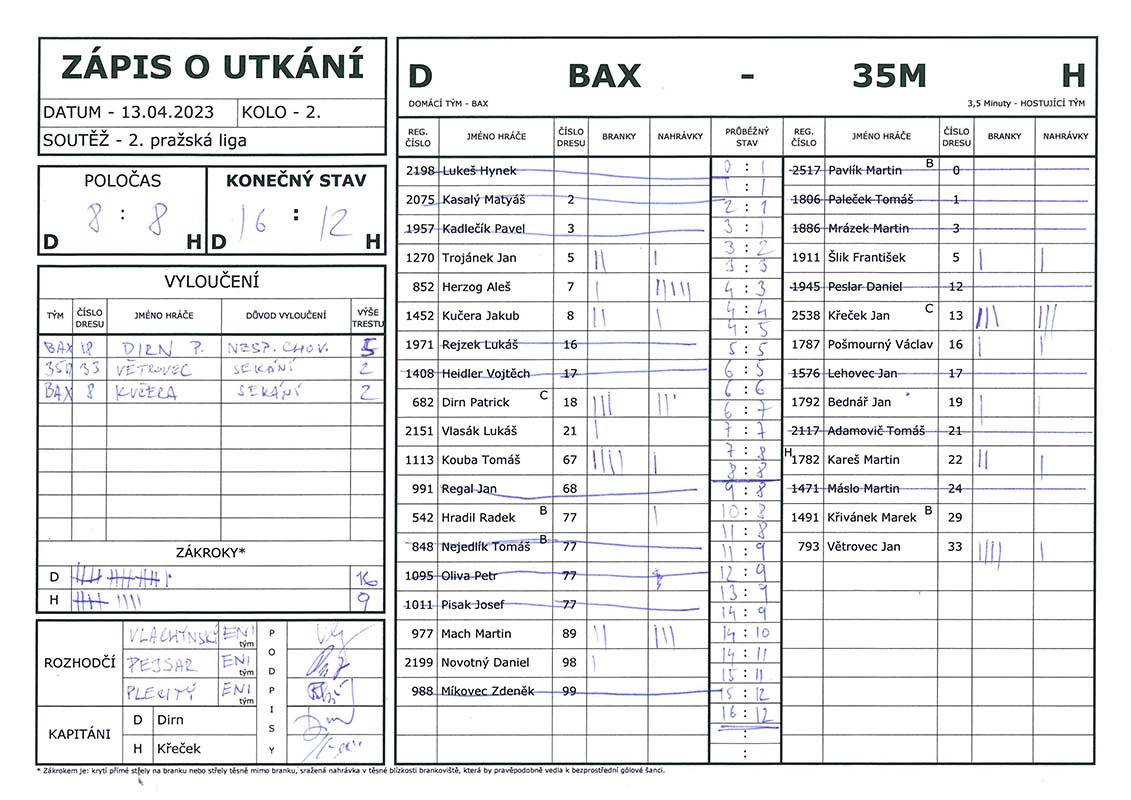 ZÁPIS O UTKÁNÍ
DATUM - 13.04.2023 KOLO - 2.
SOUTĚŽ - 2. pražská liga
POLOČAS KONEČNÝ STAV
8 : 8 16 : 12
D H D H
VYLOUČENÍ
TÝM ČÍSLO DRESU JMÉNO HRÁČE DŮVOD VYLOUČENÍ VÝŠE TRESTU
BAX 18 DIRN P. NESP. CHOV. 5
35M 33 VĚTROVEC SEKÁNÍ 2
BAX 8 KUČERA SEKÁNÍ 2
ZÁKROKY*
D 16
H 9
ROZHODČÍ
VLACHYNSKÝ ENI tým
PEJSAR ENI tým
PLECITÝ ENI tým
PODPISY
KAPITÁNI
D Dirn
H Křeček
D BAX - 35M H
DOMÁCÍ TÝM - BAX 3,5 Minuty - HOSTUJÍCÍ TÝM
REG. ČÍSLO JMÉNO HRÁČE ČÍSLO DRESU BRANKY NAHRÁVKY PRŮBĚŽNÝ STAV REG. ČÍSLO JMÉNO HRÁČE ČÍSLO DRESU BRANKY NAHRÁVKY
2198 Lukeš Hynek
2075 Kasalý Matyáš 2
1957 Kadlečík Pavel 3
1270 Trojánek Jan 5 || |
852 Herzog Aleš 7 | |||||
1452 Kučera Jakub 8 || |
1971 Rejzek Lukáš 16
1408 Heidler Vojtěch 17
682 Dirn Patrick C 18 ||| ||
2151 Vlasák Lukáš 21 |
1113 Kouba Tomáš 67 |||| |
991 Regal Jan 68
542 Hradil Radek B 77 |
848 Nejedlík Tomáš B 77
1095 Oliva Petr 77
1011 Pisak Josef 77
977 Mach Martin 89 || |||
2199 Novotný Daniel 98 |
988 Míkovec Zdeněk 99
0 : 1
1 : 1
2 : 1
3 : 1
3 : 2
3 : 3
4 : 3
4 : 4
4 : 5
5 : 5
6 : 5
6 : 6
6 : 7
7 : 7
7 : 8
8 : 8
9 : 8
10 : 8
11 : 8
11 : 9
12 : 9
13 : 9
14 : 9
14 : 10
14 : 11
15 : 11
15 : 12
16 : 12
:
2517 Pavlík Martin B 0
1806 Paleček Tomáš 1
1886 Mrázek Martin 3
1911 Šlik František 5 | |
1945 Peslar Daniel 12
2538 Křeček Jan C 13 ||| |||
1787 Pošmourný Václav 16 | |
1576 Lehovec Jan 17
1792 Bednář Jan 19 | |
2117 Adamovič Tomáš 21
H 1782 Kareš Martin 22 || |
1471 Máslo Martin 24
1491 Křivánek Marek B 29
793 Větrovec Jan 33 |||| |
* Zákrokem je: krytí přímé střely na branku nebo střely těsně mimo branku, sražená nahrávka v těsné blízkosti brankoviště, která by pravěpodobně vedla k bezprostřední gólové šanci.